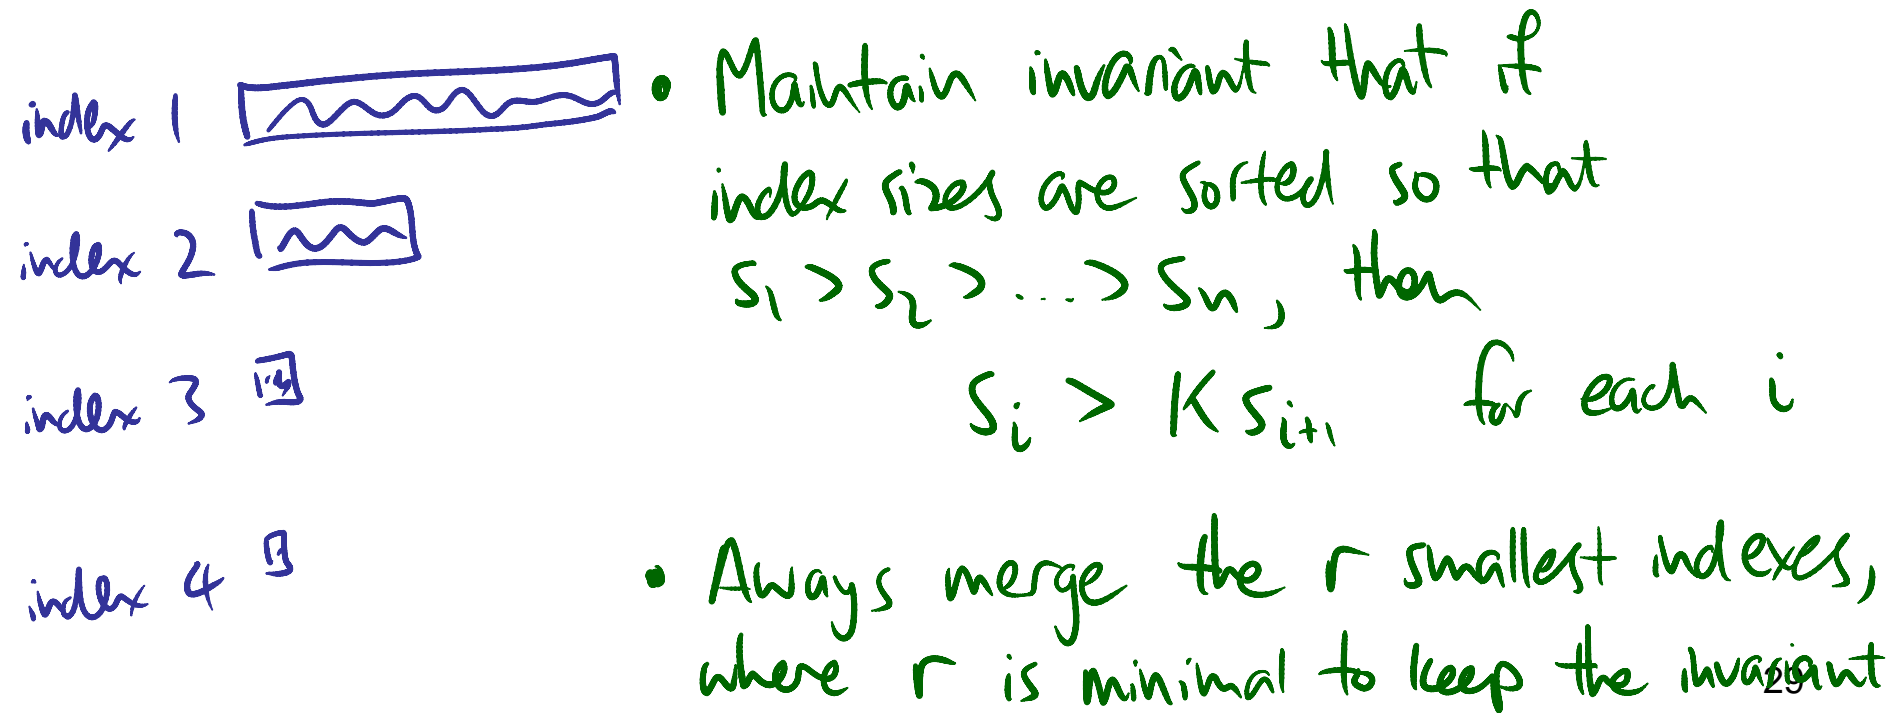 index 1
index 2
index 3
index 4
• Maintain invariant that if
index sizes are sorted so that
s₁ > s₂ > ... > sₙ, then
sᵢ > K sᵢ₊₁ for each i
• Aways merge the r smallest indexes,
where r is minimal to keep the invariant
29